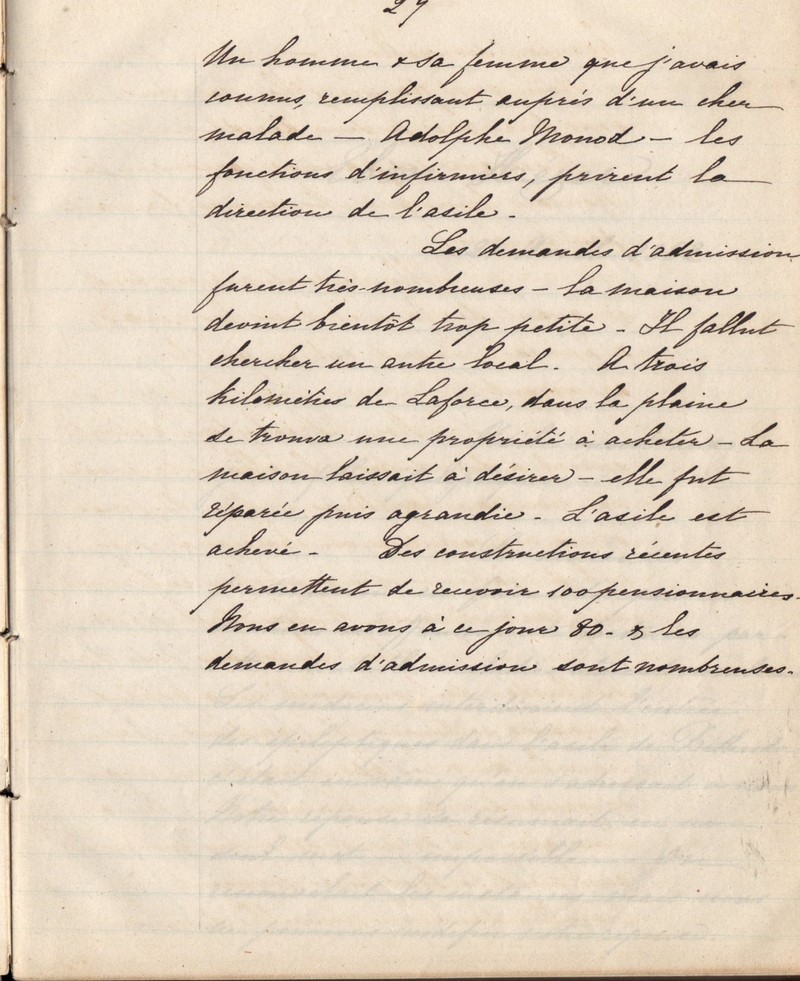 27
Un homme & sa femme que j'avais
connus, remplissant auprés d'un cher
malade — Adolphe Monod — les
fonctions d'infirmiers, prirent la
direction de l'asile -
Les demandes d'admission
furent très-nombreuses — la maison
devint bientôt trop petite - Il fallut
chercher un autre local. A trois
kilomètres de Laforce, dans la plaine
se trouva une propriété à acheter - La
maison laissait à désirer - elle fut
réparée puis agrandie - L'asile est
achevé - Des constructions récentes
permettent de recevoir 100 pensionnaires -
Nous en avons à ce jour 80 - & les
demandes d'admission sont nombreuses -